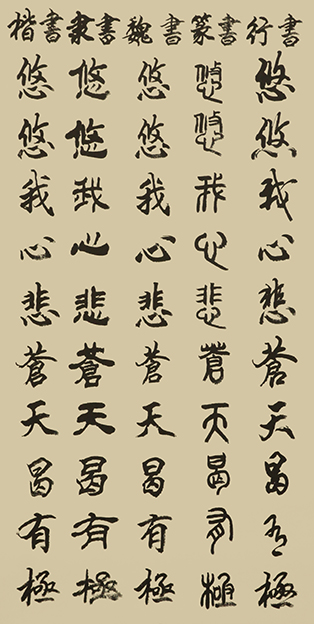 楷書 悠悠我心悲蒼天曷有極
隶書 悠悠我心悲蒼天曷有極
魏書 悠悠我心悲蒼天曷有極
篆書 悠悠我心悲蒼天曷有極
行書 悠悠我心悲蒼天曷有極